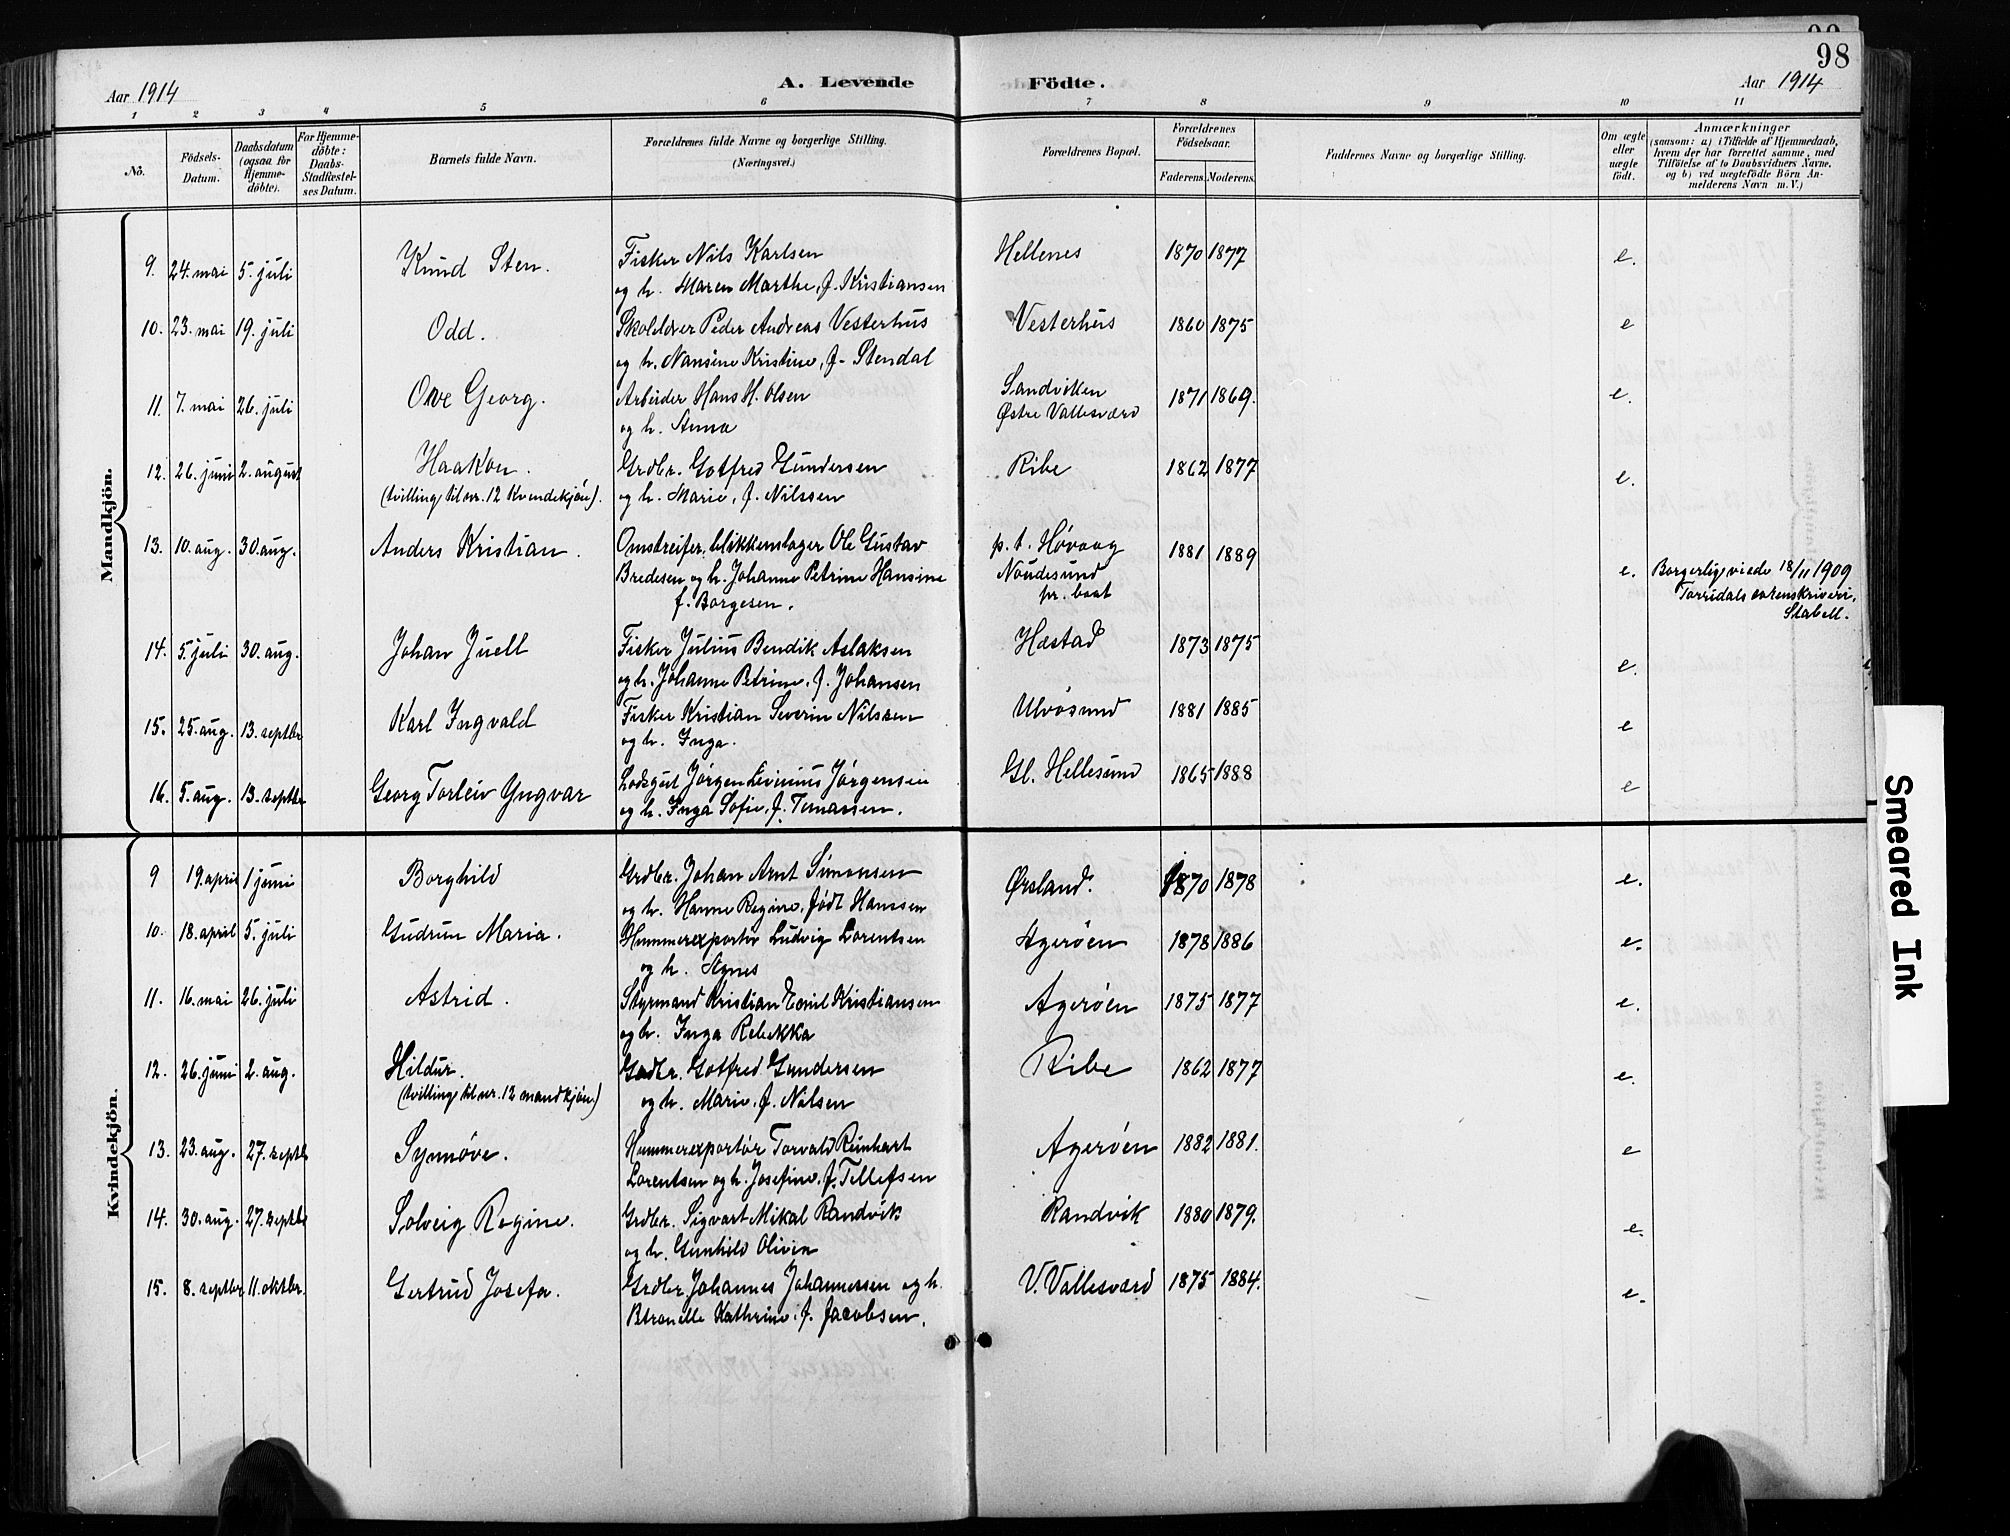 98
Aar 1914
A. Levende Födte.
Aar 1914
1 2 3 4 5 6 7 8 9 10 11
No.
Födsels-Datum.
Daabsdatum (ogsaa for Hjemme-döbte).
For Hjemme-döbte: Daabs-Stadfæstel-ses Datum.
Barnets fulde Navn.
Forældrenes fulde Navne og borgerlige Stilling.
(Næringsvei.)
Forældrenes Bopæl.
Forældrenes Födselsaar.
Faderens. Moderens.
Faddernes Navne og borgerlige Stilling.
Om ægte eller uægte födt.
Anmærkninger
(saasom: a) i Tilfælde af Hjemmedaab, hvem der har forrettet samme, med Tilföielse af to Daabsvidners Navne, og b) ved uægtefödte Börn An-melderens Navn m. V.)
Mandkjön.
9. 24. mai 5. juli Knud Sten. Fisker Nils Karlsen Hellenes 1870 1877 e.
og h. Maren Marthe, f. Kristiansen
10. 23. mai 19. juli Odd. Skolelærer Peder Andreas Vesterhus Vesterhus 1860 1875 e
og h. Nansine Kristine, f. Stendal
11. 7. mai 26. juli Ove Georg. Arbeider Hans H. Olsen Sandviken 1871 1869. e.
og h. Anna Østre Vallesværd
12. 26. juni 2. august Haakon. Grdbr. Gotfred Gundersen Ribe 1862 1877 e.
(tvilling til nr. 12 Kvindekjøn). og h. Marie, f. Nilssen
13. 10. aug. 30. aug. Anders Kristian. Omstreifer, blikkenslager Ole Gustav p. t. Høvaag 1881 1889 e. Borgerlig viede 18/11 1909
Bredesen og h. Johanne Petrine Hansine pr. baat Torridals sorenskriveri.
f. Borgesen. Stabell.
14. 5. juli 30. aug. Johan Juell Fisker Julius Bendik Aslaksen Hæstad 1873 1875 e.
og h. Johanne Petrine, f. Johansen
15. 25. aug. 13. septbr Karl Ingvald Fisker Kristian Severin Nilssen Ulvøsund 1881 1885 e
og h. Inga.
16. 5. aug. 13. septbr Georg Torleiv Yngvar Lodsgut Jørgen Livinius Jørgensen Gl. Hellesund 1865 1888 e
og h. Inga Sofie, f. Tomassen.
Kvindekjön.
9 19. april 1 juni Borghild Grdbr. Johan Arnt Simonsen Ørsland. 1870 1878 e.
og h. Hanne Regine, født Hanssen
10. 18. april 5. juli Gudrun Maria. Hummerexportør Ludvig Lorentsen Agerøen 1878 1886 e.
og h. Agnes
11. 16. mai 26. juli Astrid. Styrmand Kristian Emil Kristiansen Agerøen 1875 1877 e.
og h. Inga Rebekka
12. 26. juni 2. aug. Hildur. Grdbr. Gotfred Gundersen Ribe 1862 1877 e.
(tvilling til nr. 12 mandkjøn) og h. Marie, f. Nilsen
13. 23. aug. 27. septb Synnøve. Hummerexportør Torvald Reinhart Agerøen 1882 1881. e
Lorentsen og h. Josefine, f. Tellefsen
14. 30. aug. 27. septb Solveig Regine. Grdbr. Sigvart Mikal Randvik Randvik 1880 1879. e.
og h. Gunhild Olivia
15. 8. septbr 11. oktbr. Gertrud Josefa. Grdbr. Johannes Johannessen og h. V. Vallesværd 1875 1884. e.
Petronelle Kathrine, f. Jacobsen.
Smeared Ink